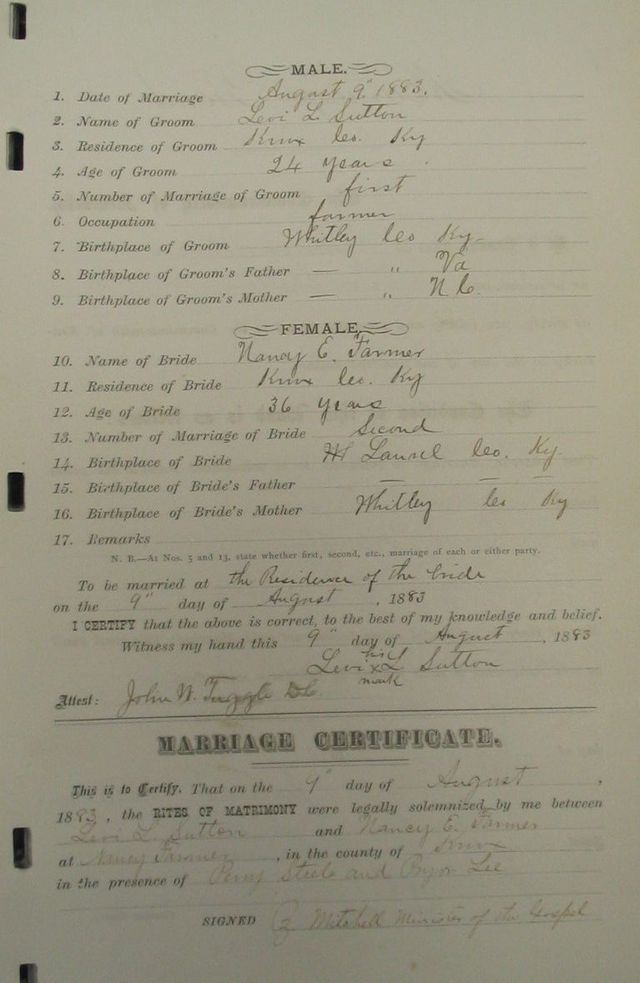 MALE.
1. Date of Marriage August 9" 1883.
2. Name of Groom Levi L. Sutton
3. Residence of Groom Knox Co. Ky
4. Age of Groom 24 years.
5. Number of Marriage of Groom first
6. Occupation farmer
7. Birthplace of Groom Whitley Co Ky
8. Birthplace of Groom's Father — " Va
9. Birthplace of Groom's Mother — " N.C.
FEMALE.
10. Name of Bride Nancy E. Farmer
11. Residence of Bride Knox Co. Ky
12. Age of Bride 36 years
13. Number of Marriage of Bride Second
14. Birthplace of Bride Laurel Co. Ky.
15. Birthplace of Bride's Father — — —
16. Birthplace of Bride's Mother Whitley Co Ky
17. Remarks
N. B.—At Nos. 5 and 13, state whether first, second, etc., marriage of each or either party.
To be married at the Residence of the bride
on the 9" day of August, 1883
I CERTIFY that the above is correct, to the best of my knowledge and belief.
Witness my hand this 9" day of August, 1883
Levi his x mark L Sutton
Attest: John W. Tuggle D.C.
MARRIAGE CERTIFICATE.
This is to Certify, That on the 9" day of August,
1883, the RITES OF MATRIMONY were legally solemnized by me between
Levi L. Sutton and Nancy E. Farmer
at Nancy Farmer, in the county of Knox
in the presence of Perry Steele and Lee
SIGNED Mitchell Minister of the Gospel